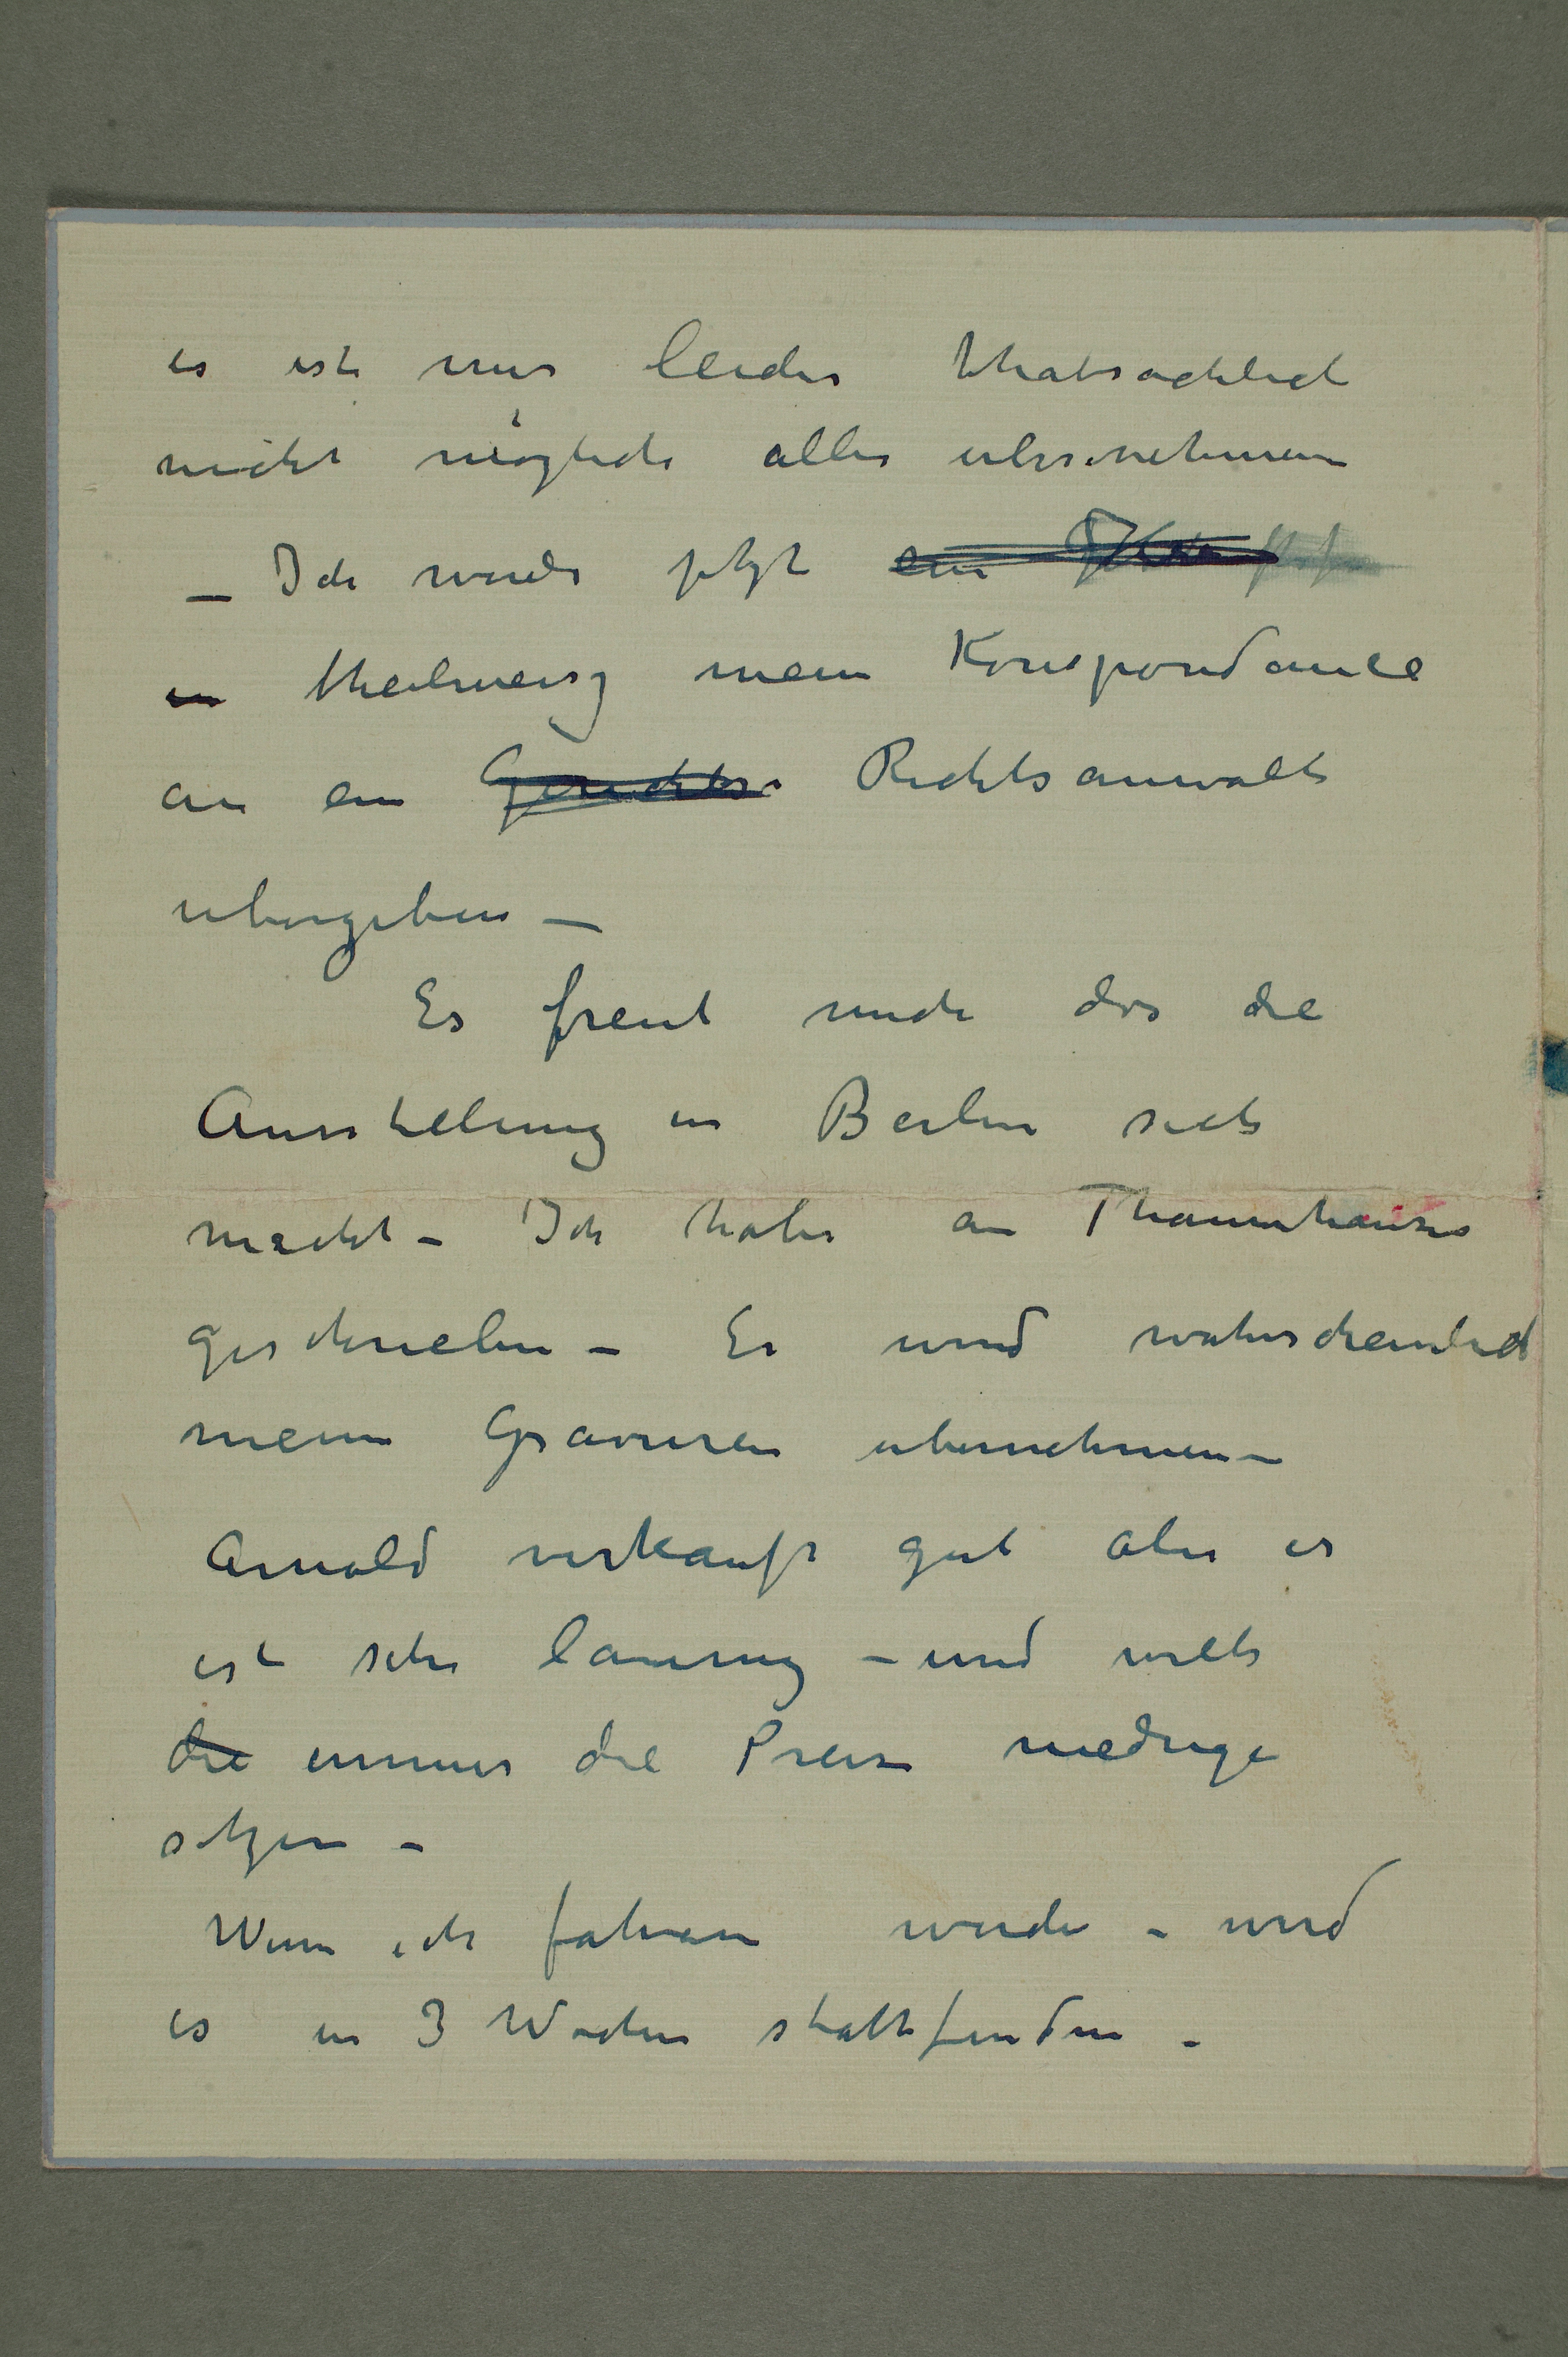 es ist mir leider thatsächlich
nicht möglich alles übernehmen
– Ich werde jetzt ein
in theilweise mein Korrespondance
an ein Gerichts Rechtsanwalt
ubergeben –
Es freut mich das die
Ausstellung in Berlin sich
macht – Ich habe an Thannhauser
geschrieben – Er wird wahrscheinlich
meine Gravuren ubernehmen –
Arnold verkauft gut aber er
ist sehr launig – und will
die immer die Preise niedrige
setzen –
Wenn ich fahren werde – wird
es in 3 Wochen stattfinden –